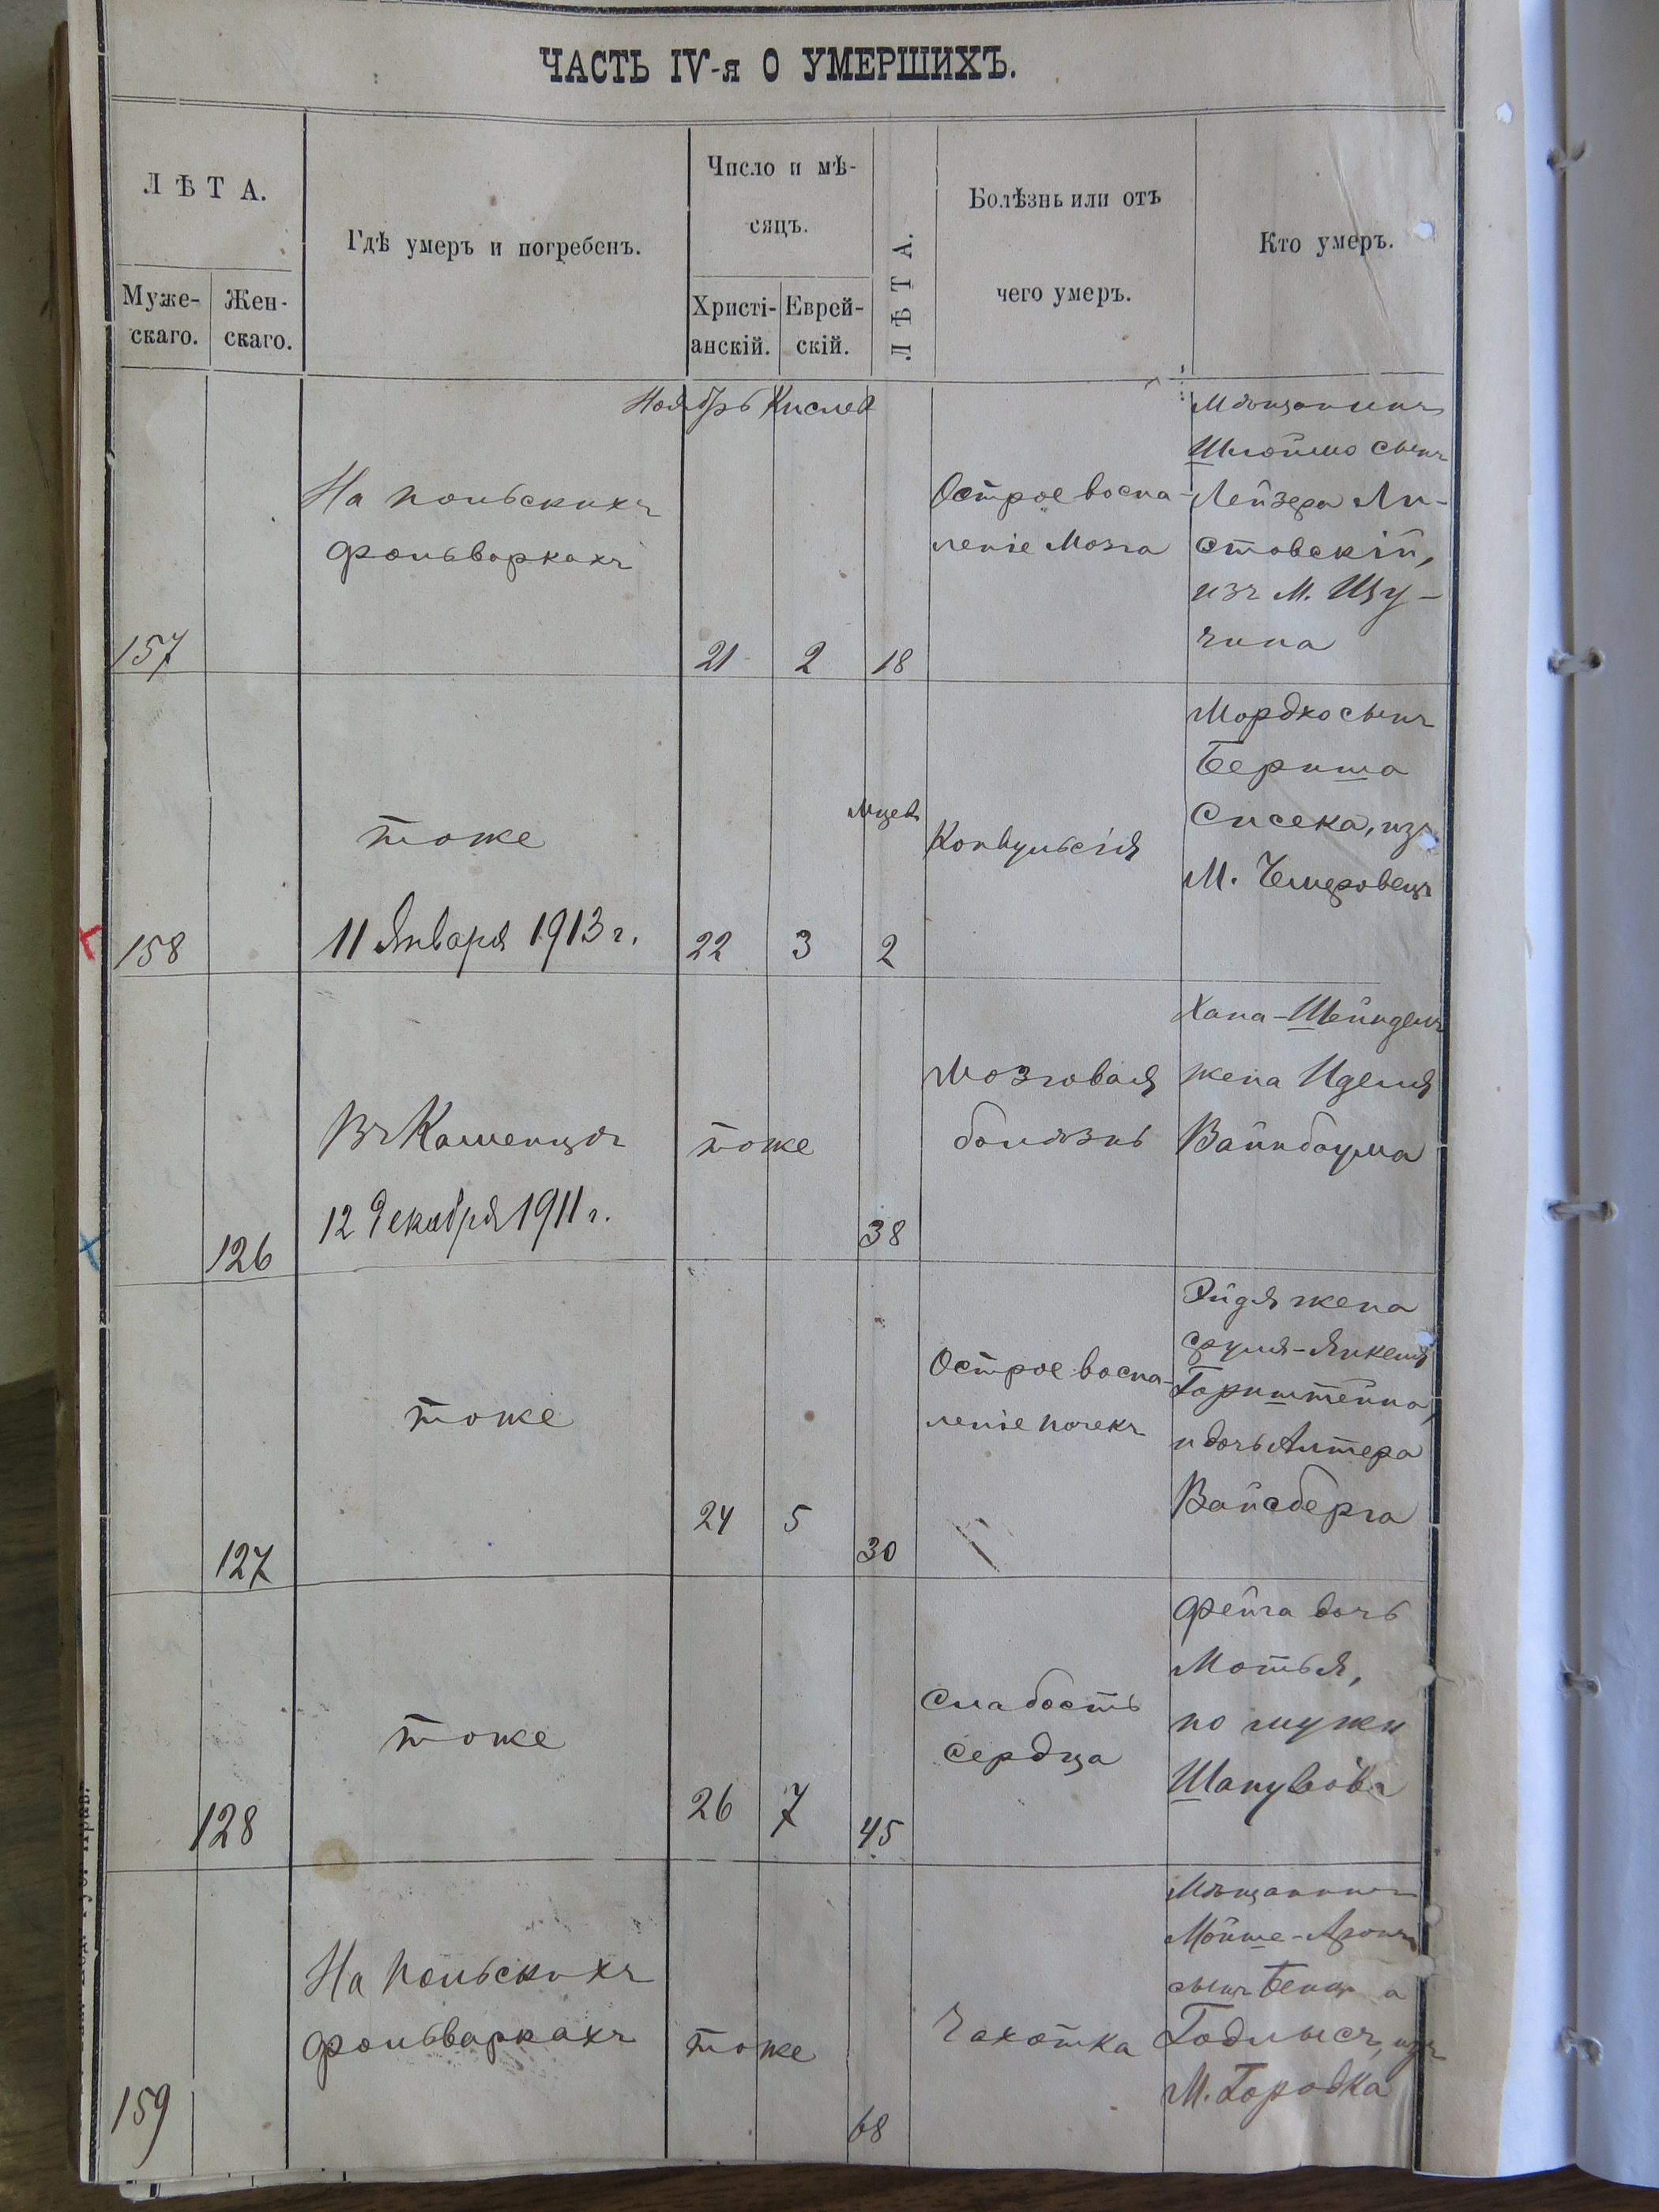 ЧАСТЬ IV-я О УМЕРШИХЪ.
ЛѢТА.
Муже-
скаго.
Жен-
скаго.
Гдѣ умеръ и погребенъ.
Число и мѣ-
сяцъ.
Христі-
анскій.
Еврей-
скій.
ЛѢТА.
Болѣзнь или отъ
чего умеръ.
Кто умеръ.
Ноябрь Кислев
157
На польскихъ
фольваркахъ
21
2
18
Острое воспа-
леніе мозга
Мѣщанинъ
Шлоймо сынъ
Лейзера Ли-
стовскій,
изъ М.
158
тоже
11 Января 1913 г.
22
3
Мцев
2
Конвульсія
Мордко сынъ
Бериша
Сисека, изъ
М. Чемеровецъ
126
Въ Каменцѣ
12 Декабря 1911 г.
тоже
38
Мозговая
болѣзнь
Хана-Шейндель
жена Иделя
Вайнбаума
127
тоже
24
5
30
Острое воспа-
леніе почекъ
Эйдя жена
Сруля-Янкеля
Горнштейна,
и дочь Алтера
Вайсберга
128
тоже
26
7
45
Слабость
сердца
Фейга дочь
Мотья,
по мужи
159
На Польскихъ
фольваркахъ
тоже
68
Чахотка
Мѣщанинъ
Мойше-Аронъ
сынъ
Годлысъ, изъ
М. Городка